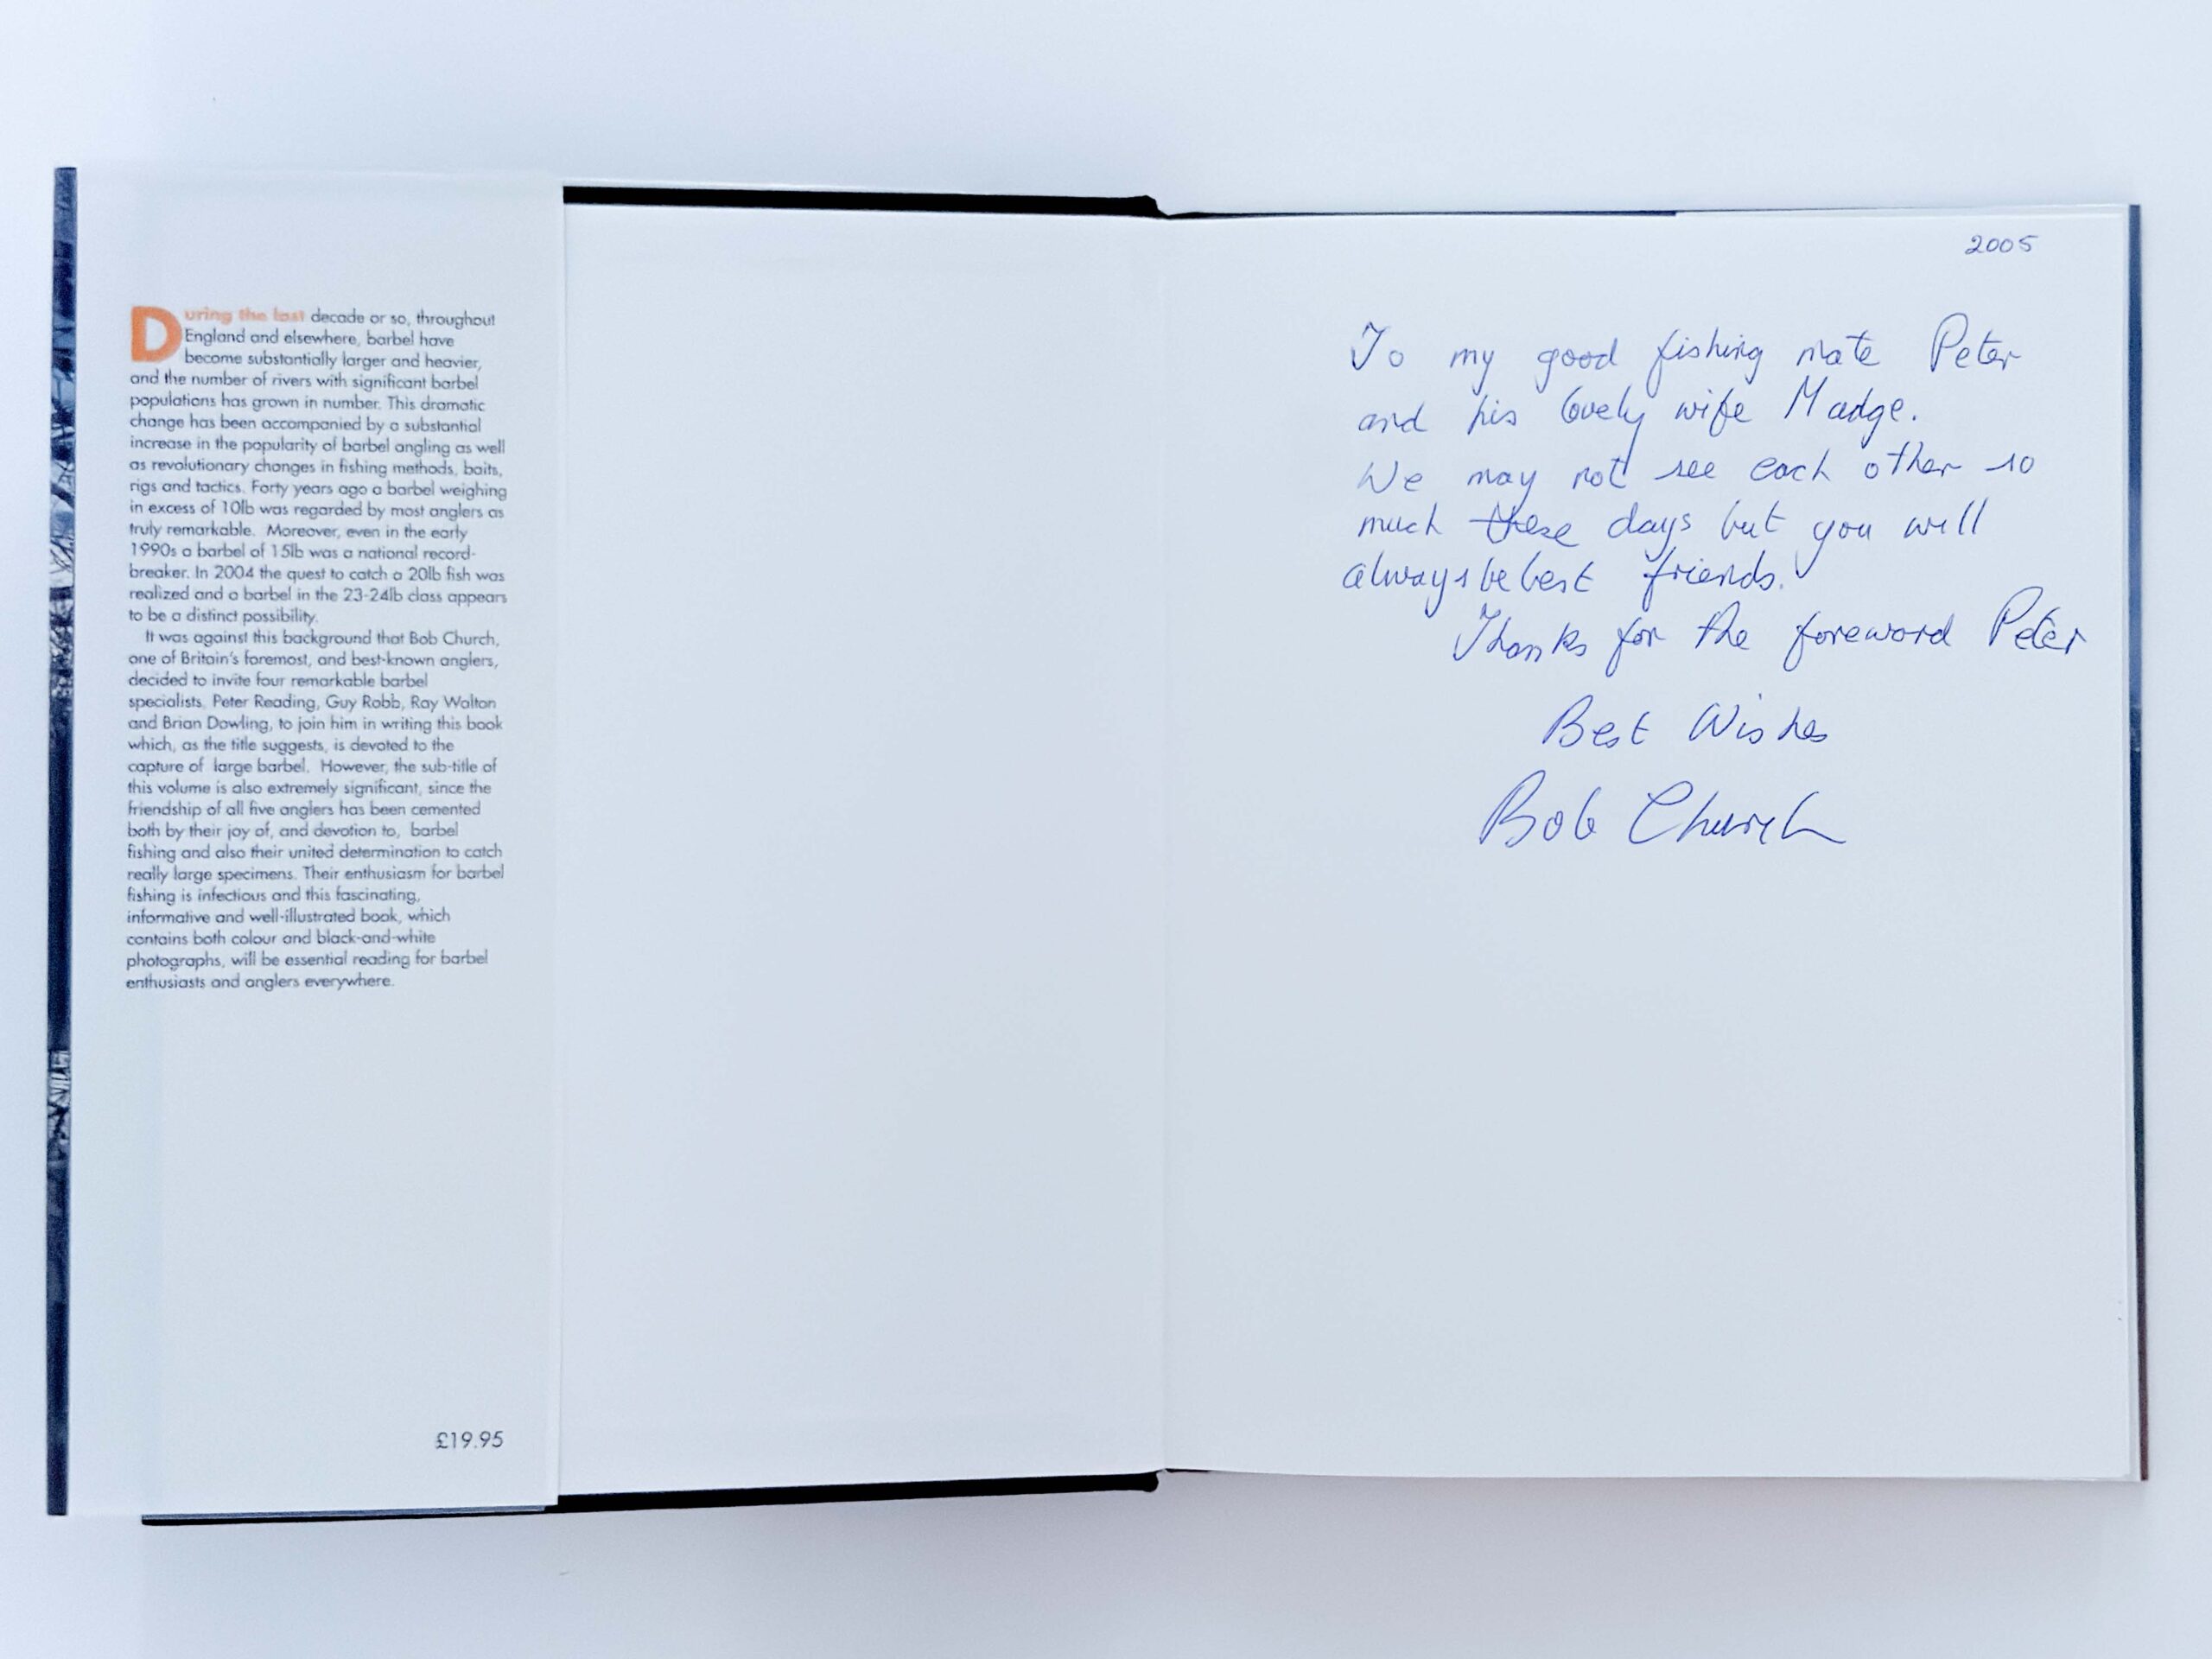 During the last decade or so, throughout
England and elsewhere, barbel have
become substantially larger and heavier,
and the number of rivers with significant barbel
populations has grown in number. This dramatic
change has been accompanied by a substantial
increase in the popularity of barbel angling as well
as revolutionary changes in fishing methods, baits,
rigs and tactics. Forty years ago a barbel weighing
in excess of 10lb was regarded by most anglers as
truly remarkable. Moreover, even in the early
1990s a barbel of 15lb was a national record-
breaker. In 2004 the quest to catch a 20lb fish was
realized and a barbel in the 23-24lb class appears
to be a distinct possibility.
It was against this background that Bob Church,
one of Britain's foremost, and best-known anglers,
decided to invite four remarkable barbel
specialists, Peter Reading, Guy Robb, Ray Walton
and Brian Dowling, to join him in writing this book
which, as the title suggests, is devoted to the
capture of large barbel. However, the sub-title of
this volume is also extremely significant, since the
friendship of all five anglers has been cemented
both by their joy of, and devotion to, barbel
fishing and also their united determination to catch
really large specimens. Their enthusiasm for barbel
fishing is infectious and this fascinating,
informative and well-illustrated book, which
contains both colour and black-and-white
photographs, will be essential reading for barbel
enthusiasts and anglers everywhere.
£19.95
2005
To my good fishing mate Peter
and his lovely wife Madge.
We may not see each other so
much these days but you will
always be best friends.
Thanks for the foreword Peter
Best Wishes
Bob Church